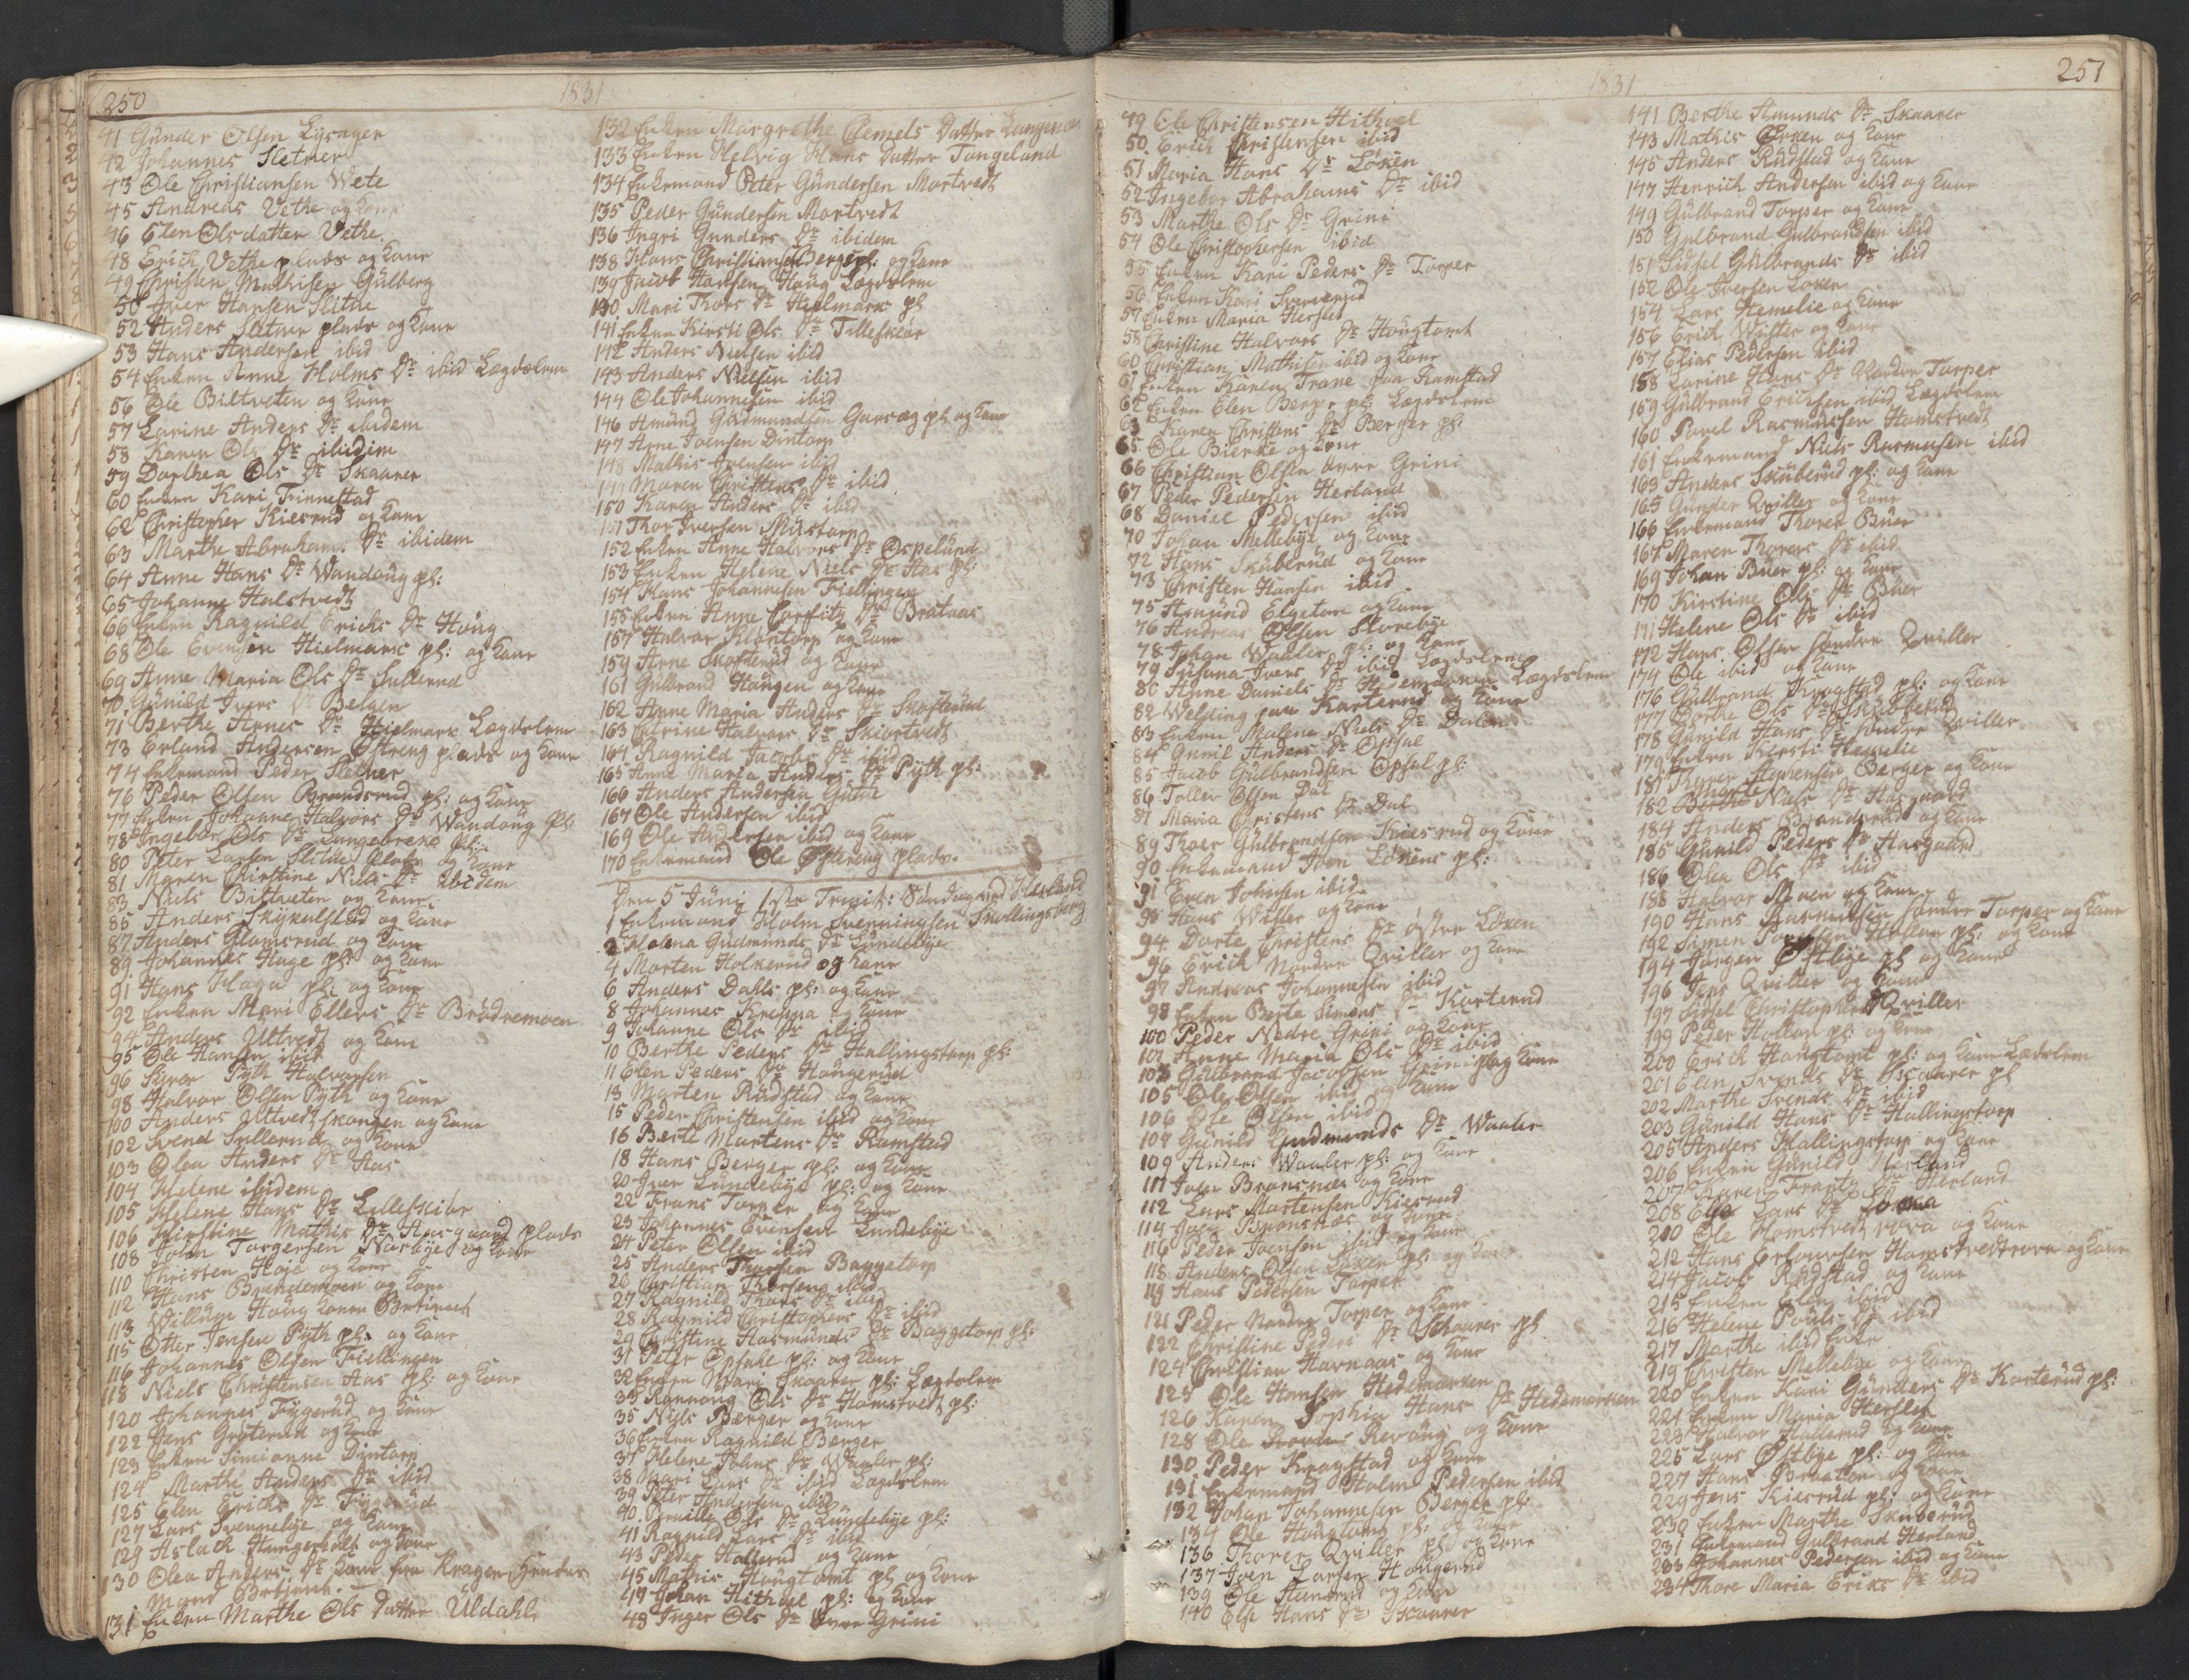 250
1831
41 Gunder Olsen Lysager
42 Johannes Sletner
43 Ole Christiansen Wete
45 Andreas Vethe og kone
46 Elen Olsdatter Vethe
48 Erich Vethe plads og kone
49 Christen Mathisen Gulberg
50 Iver Hansen Slitue
52 Anders Sletner plads og kone
53 Hans Andersen ibid
54 Enken Anne Holms Dr ibid Lægdslem
56 Ole Biltveten og kone
57 Larine Anders Dr ibidem
58 Karen Ols Dr ibidem
59 Dorthea Ols Dr Skaarer
60 Enken Kari Finnestad
62 Christopher Kiesrud og kone
63 Marthe Abraham. Dr ibidem
64 Anne Hans Dr Wandoug pl:
65 Johanne Halstvedt
66 Enken Ragnild Erichs Dr Houg
68 Ole Evensen Hielmark pl: og kone
69 Anne Maria Ols Dr Sullerud
70 Gunild Ivers D Belgen
71 Berthe Arnes Dr Hielmark Lægdslem
73 Erland Andersen Østreng plads og kone
74 Enkemand Peder Sletner
76 Peder Olsen Brandsrud pl: og kone
77 Enken Johanne Halvors Dr Wandoug Pl:
78 Ingebor Ols Dr Langebreke pl:
80 Peter Larsen Slitue plads og kone
81 Maren Kirstine Niels Dr ibidem
83 Niels Biltveten og kone
85 Anders Skykulstad og kone
87 Anders Glomsrud og kone
89 Johannes Hage pl: og kone
91 Hans Haga pl: og kone
92 Enken Mari Ellevs Dr Brudremoen
94 Anders Ultvedt og kone
95 Ole Hansen ibid
96 Pyth Halvorsen
98 Halvor Olsen Pyth og kone
100 Anders Ultvedtskougen og kone
102 Svend Sullerud og kone
103 Olea Anders Dr Aas
104 Helene ibidem
105 Helene Hans Dr Lilleskibr
106 Kirstine Mathis Dr Haragaard plads
108 John Torgersen Narbye og kone
110 Christen Haje og kone
112 Hans Brendemoen og kone
113 Willum Houg konen
115 Otter Jensen Pyth pl: og kone
116 Johannes Olsen Fiellingen
118 Niels Christensen Aas pl: og kone
120 Johannes Frygerud og kone
122 Jens Groterud og kone
123 Enken Simianne Dintorp
124 Marthe Anders Dr ibid
125 Elen Erichs Dr Frygerud
127 Lars Svennebye og kone
129 Aslack Hungerholt og kone
130 Olea Anders Dr kone fra Kragerø
Mand
131 Enken Marthe Ols Datter Uldahl
132 Enken Margrethe Clemels Datter Langenæs
133 Enken Helvig Hans Datter Tangeland
134 Enkemand Peter Gundersen Mortvedt
135 Peder Gundersen Mortvedt
136 Ingri Gunders Dr ibidem
138 Hans Christiansen Berger pl: og kone
139 Jacob Hansen Houg Lægdslem
140 Mari Thors Dr Hielmark pl
141 Enken Kirsti Ols Dr Lilleskiær
142 Anders Nielsen ibid
143 Anders Nielsen ibid
144 Ole Johannesen ibid
146 Amund Gudmundsen Gaasøg pl og kone
147 Arne Joensen Dintorp
148 Mathis Joensen ibid
149 Maren Christens Dr ibid
150 Karen Anders Dr ibid
151 Thor Iversen Mustorp
152 Enken Anne Halvors Dr Ospelund
153 Enken Helene Niels Dr Aas pl:
154 Hans Johannesen Fiellingen
155 Enken Anne Corfitz Dr Brataas
157 Halvor Klontorp og kone
159 Arne Skofterud og kone
161 Gulbrand Haugen og kone
162 Anne Maria Anders Dr Skofterud
163 Catrine Halvors Dr Skiortvedt
164 Ragnild Jacobs Dr ibid
165 Anne Maria Anders Dr Pyth pl:
166 Anders Andersen Gutue
167 Ole Andersen ibid
169 Ole Andersen ibid og kone
170 Enkemand Ole Østereng plads.
Den 5 Juni 1ste Trinit: Søndag ved Herland
1 Enkemand Holm Svenningsen Snollingsberg
2 Malena Gudmunds Dr Lundebye
4 Morten Holkerud og kone
6 Anders Dahls pl: og kone
8 Johannes Krepna og kone
9 Johanne Ols Dr ibid
10 Berthe Peders Dr Hallingstorp pl:
11 Elen Peders Dr Haugerud
13 Morten Rudstad og kone
15 Peder Christensen ibid og kone
16 Berte Martens Dr Ramstad
18 Hans Berger pl: og kone
20 Iver Lundebye pl: og kone
22 Frans Torper og kone
23 Johannes Evensen Lundebye
24 Peter Olsen ibid
25 Anders Thorsen Baggetorp
26 Christian Thorsen ibid
27 Ragnild Thors Dr ibid
28 Ragnild Christophers Dr ibid
29 Christine Hasmunds Dr Baggetorp pl:
31 Peter Opsahl pl: og kone
32 Enken Mari Skaarer pl: Lægdslem
33 Rannoug Ols Dr Homstvedt pl:
35 Niels Berger og kone
36 Enken Ragnild Berger
37 Helene Johns Dr Waaler pl:
38 Mari Lars Dr ibid Lægdslem
39 Peter Andersen ibid
40 Pernille Ols Dr Lundebye pl:
41 Ragnild Lars Dr ibid
43 Peder Hallerud og kone
45 Mathis Hougtomt pl og kone
47 Johan Hithoel pl: og kone
48 Inger Ols Dr Øvre Grini
251
1831
49 Ole Christensen Hithoel
50 Erich Christensen ibid
51 Maria Hans Dr Løken
52 Ingebor Abrahams Dr ibid
53 Marthe Ols Dr Grini
54 Ole Christophersen ibid
55 Enken Kari Peders Dr Torper
56 Enken Kari
57 Enken Maria Hersled
58 Christine Halvors Dr Hougtomt
60 Christian Mathisen ibid og kone
61 Enken Karen Trane paa Ramstad
62 Enken Elen Berger pl: Lægdslem
63 Karen Christens Dr Berger pl:
65 Ole Bierke og kone
66 Christian Olsen øvre Grini
67 Peder Pedersen Herland
68 Daniel Pedersen ibid
70 Johan Mellebye og kone
72 Hans Skublerud og kone
73 Christen Hansen ibid
75 Amund Elgetun og kone
76 Andreas Olsen Storebye
78 Johan Waaler pl: og kone
79 Susana Ivers Dr ibid Lægdslem
80 Anne Daniels Dr Hedemarken Lægdslem
82 Welding paa Karterud og kone
83 Enken Malene Niels Dr Dalen
84 Gunil Anders Dr Opsal
85 Jacob Gulbrandsen Opsal pl:
86 Toller Olsen Dal
87 Maria Christens Dr Dal
89 Thoer Gulbrandsen Kiesrud og kone
90 Enkemand Joen Løkens pl:
91 Even Johnsen ibid
93 Hans Wister og kone
94 Dorte Christens Dr østre Løken
96 Erich Nordre Qviller og kone
97 Andreas Johannesen ibid
98 Enken Berte Simens Dr Karterud
100 Peder Nedre Grini og kone
101 Anne Maria Ols Dr ibid
103 Gulbrand Jacobsen Grini pl og kone
105 Ole Olsen ibid og kone
106 Ole Olsen ibid
107 Gunild Gudmunds Dr Waaler
109 Anders Waaler pl: og kone
111 Joen Bronsnæs og kone
112 Lars Martensen Kiesrud
114 Joen Bronsnæs og kone
116 Peder Joensen ibid og kone
118 Anders Olsen Løken pl: og kone
119 Hans Pedersen Torper
121 Peder Nordre Torper og kone
122 Christine Peders Dr Skaarer pl
124 Christian Havnaas og kone
125 Ole Hansen Hedemarken
126 Karen Sophia Hans Dr Hedemarken
128 Ole Revoug og kone
130 Peder Kragstad og kone
131 Enkemand Holm Pedersen ibid
132 Johan Johannesen Berger pl:
134 Ole Hougtomt pl: og kone
136 Thorer Qviller pl: og kone
137 Joen Larsen Hougerud
139 Ole Stensrud og kone
140 Else Hans Dr Skaarer
141 Berthe Amunds Dr Skaarer
143 Mathis Ørken og kone
145 Anders Rudstad og kone
147 Henrich Andersen ibid og kone
149 Gulbrand Torper og kone
150 Gulbrand Gulbrandsen ibid
151 Sidsel Gulbrands Dr ibid
152 Ole Iversen Løken
154 Lars Hemelie og kone
156 Erich Wister og kone
157 Elias Pedersen ibid
158 Larine Hans Dr Nordre Torper
159 Gulbrand Erichsen ibid Lægdslem
160 Povel Rasmussen Homstvedt
161 Enkemand Niels Rasmusen ibid
163 Anders Skublerud pl: og kone
165 Gunder Qviller og kone
166 Enkemand Thorer Buer
167 Maren Thorers Dr ibid
169 Johan Buer pl: og kone
170 Kirstine Ols Dr Buer
171 Helene Ols Dr ibid
172 Hans Olsen søndre Qviller
174 Ole ibid og kone
176 Gulbrand Kragstad pl: og kone
177 Berthe Ols Dr Skublerud
178 Gunild Hans Dr søndre Qviller
179 Enken Kirsti Hemelie
181 Thorer Stephensen Berger og kone
182 Marte Niels Dr Haagaard
184 Anders Brandsrud og kone
185 Gunild Peders Dr Haagaard
186 Olea Ols Dr ibid
188 Halvor Moen og kone
190 Hans Rasmussen søndre Torper og kone
192 Simen Povelsen Holtan pl: og kone
194 Jørgen Østbye pl og kone
196 Jens Qviller og kone
197 Sidsel Christophers D Qviller
199 Peder Holtan pl: og kone
200 Erich Hougtomt pl: og kone Lædslem
201 Elen Svends Dr Skaarer pl
202 Marthe Svends Dr ibid
203 Gunild Hans Dr Hallingstorp
205 Anders Hallingstorp og kone
206 Enken Gunild Herland
207 Karen Frantz Dr Herland
208 Else Lars Dr
210 Ole Homstvedtrova og kone
212 Hans Erlandsen Homstvedtrova og kone
214 Jacob Rudstad og kone
215 Enken Elen ibid
216 Helene Pouls Dr ibid
217 Marthe ibid Enke
219 Christen Mellebye og kone
220 Enken Kari Gunders Dr Karterud pl:
221 Enken Maria Hersled
223 Halvor Hallerud og kone
225 Lars Østbye pl: og kone
227 Hans Braaten og kone
229 Jens Kiesrud pl: og kone
230 Enken Marthe Skublerud
231 Enkemand Gulbrand Herland
233 Johannes Pedersen ibid og kone
234 Thore Maria Eriks Dr ibid